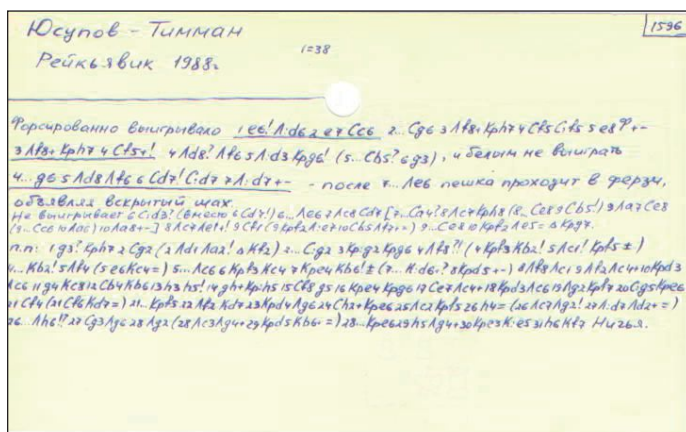 Юсупов - Тимман
1596
1=38
Рейкьявик 1988г
Форсированно выигрывало 1 e6! Л:d6 2 e7 Cc6 2... Cg6 3 Лf8+ Kph7 4 Cf5 C:f5 5 e8Ф+-
3 Лf8+ Kph7 4 Cf5+! 4 Лd8? Лf6 5 Л:d3 Kpg6! (5... Cb5? 6 g3), и белым не выиграть
4... g6 5 Лd8 Лf6 6 Cd7! C:d7 7 Л:d7+- - после 7... Лe6 пешка проходит в ферзи,
объявляя вскрытый шах.
Не выигрывает 6 C:d3? (вместо 6 Cd7!) 6... Лe6 7 Лc8 Cd7 [7... Ca4? 8 Лc7 Kph8 (8... Ce8 9 Cb5!) 9 Лa7 Ce8
(9... Cc6 10 Лa6) 10 Лa8+-] 8 Лc7 Лe7! 9 Cf1 (9 Kpf2 Л:e7 10 Cb5 Лf7+=) 9... Ce8 10 Kpf2 Лe5= Kpg7.
п.п: 1 g3? Kph7 2 Cg2 (2 Лd1 Лa2! Kf2) 2... C:g2 3 Kp:g2 Kpg6 4 Лf8!? (4 Kpf3 Kb2! 5 Лc1! Kpf5 ±)
4... Kb2! 5 Лf4 (5 e6 Kc4=) 5... Лc6 6 Kpf3 Kc4 7 Kpe4 Kb6! ± (7... K:d6? 8 Kpd5+-) 8 Лf8 Лc1 9 Лf2 Лc4+ 10 Kpd3
Лc6 11 g4 Kc8 12 Cb4 Kb6 13 h3 h5! 14 gh+ Kp:h5 15 Cf8 g5 16 Kpe4 Kpg6 17 Ce7 Лc4+ 18 Kpd3 Лc6 19 Лg2 Kpf7 20 C:g5 Kpe6
21 Cf4 (21 Cf6 Kd7=) 21... Kpf5 22 Лf2 Kd7 23 Kpd4 Лg6 24 Ch2+ Kpe6 25 Лc2 Kpf5 26 h4= (26 Лc7 Лg2! 27 Л:d7 Лd2+=)
26... Лh6!? 27 Cg3 Лg6 28 Лg2 (28 Лc3 Лg4+ 29 Kpd5 Kb6+=) 28... Kpe6 29 h5 Лg4+ 30 Kpe3 K:e5 31 h6 Kf7 Ничья.